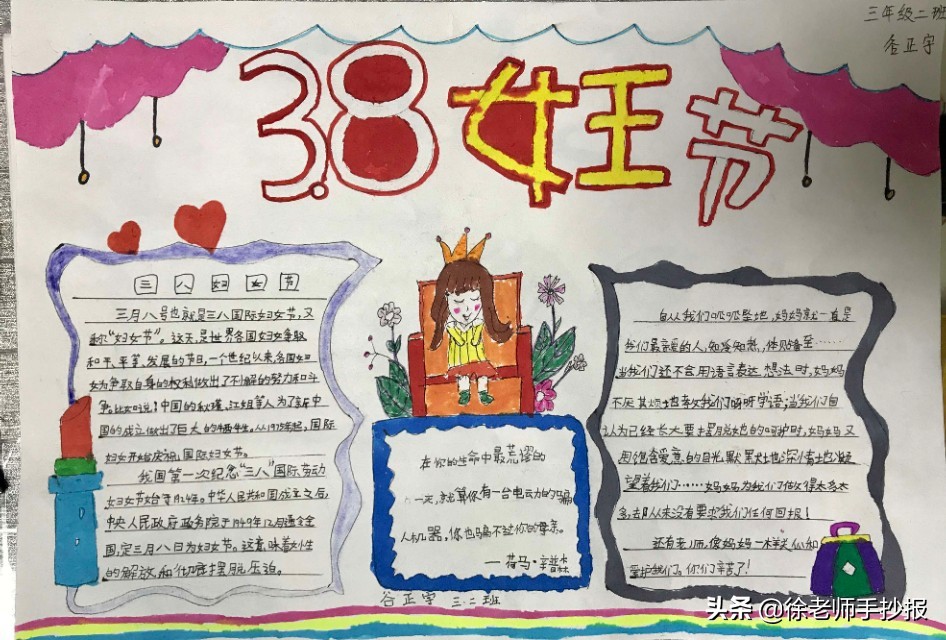 三年级二班
谷正宇
3.8女王节
三八妇女节
三月八号也就是三八国际妇女节,又
称"妇女节"。这天,是世界各国妇女争取
和平、平等、发展的节日,一个世纪以来,各国妇
女为争取自身的权利做出了不懈的努力和斗
争。比如说:中国的秋瑾,江姐等人为了新中
国的成立做出了巨大的牺牲。从1975年起,国际
妇女开始庆祝国际妇女节。
我国第一次纪念"三八"国际劳动
妇女节始于1924年。中华人民共和国成立之后,
中央人民政府政务院于1949年12月通令全
国,定三月八日为妇女节。这意味着女性
的解放和彻底摆脱压迫。
在你的生命中最荒谬的
一天,就算你有一台电动力的骗
人机器,你也骗不过你的母亲。
——荷马·辛普森
自从我们呱呱坠地,妈妈就一直是
我们最亲爱的人,知冷知热,体贴备至……
当我们还不会用语言表达想法时,妈妈
不厌其烦地教我们呀呀学语;当我们自
认为已经长大要摆脱她的呵护时,妈妈又
用饱含爱意的目光,默默地深情地凝
望着我们……妈妈为我们做得太多太
多,却从来没有要求我们任何回报!
还有老师,像妈妈一样关心和
爱护我们。你们辛苦了!
谷正宇 三.二班
头条 @徐老师手抄报